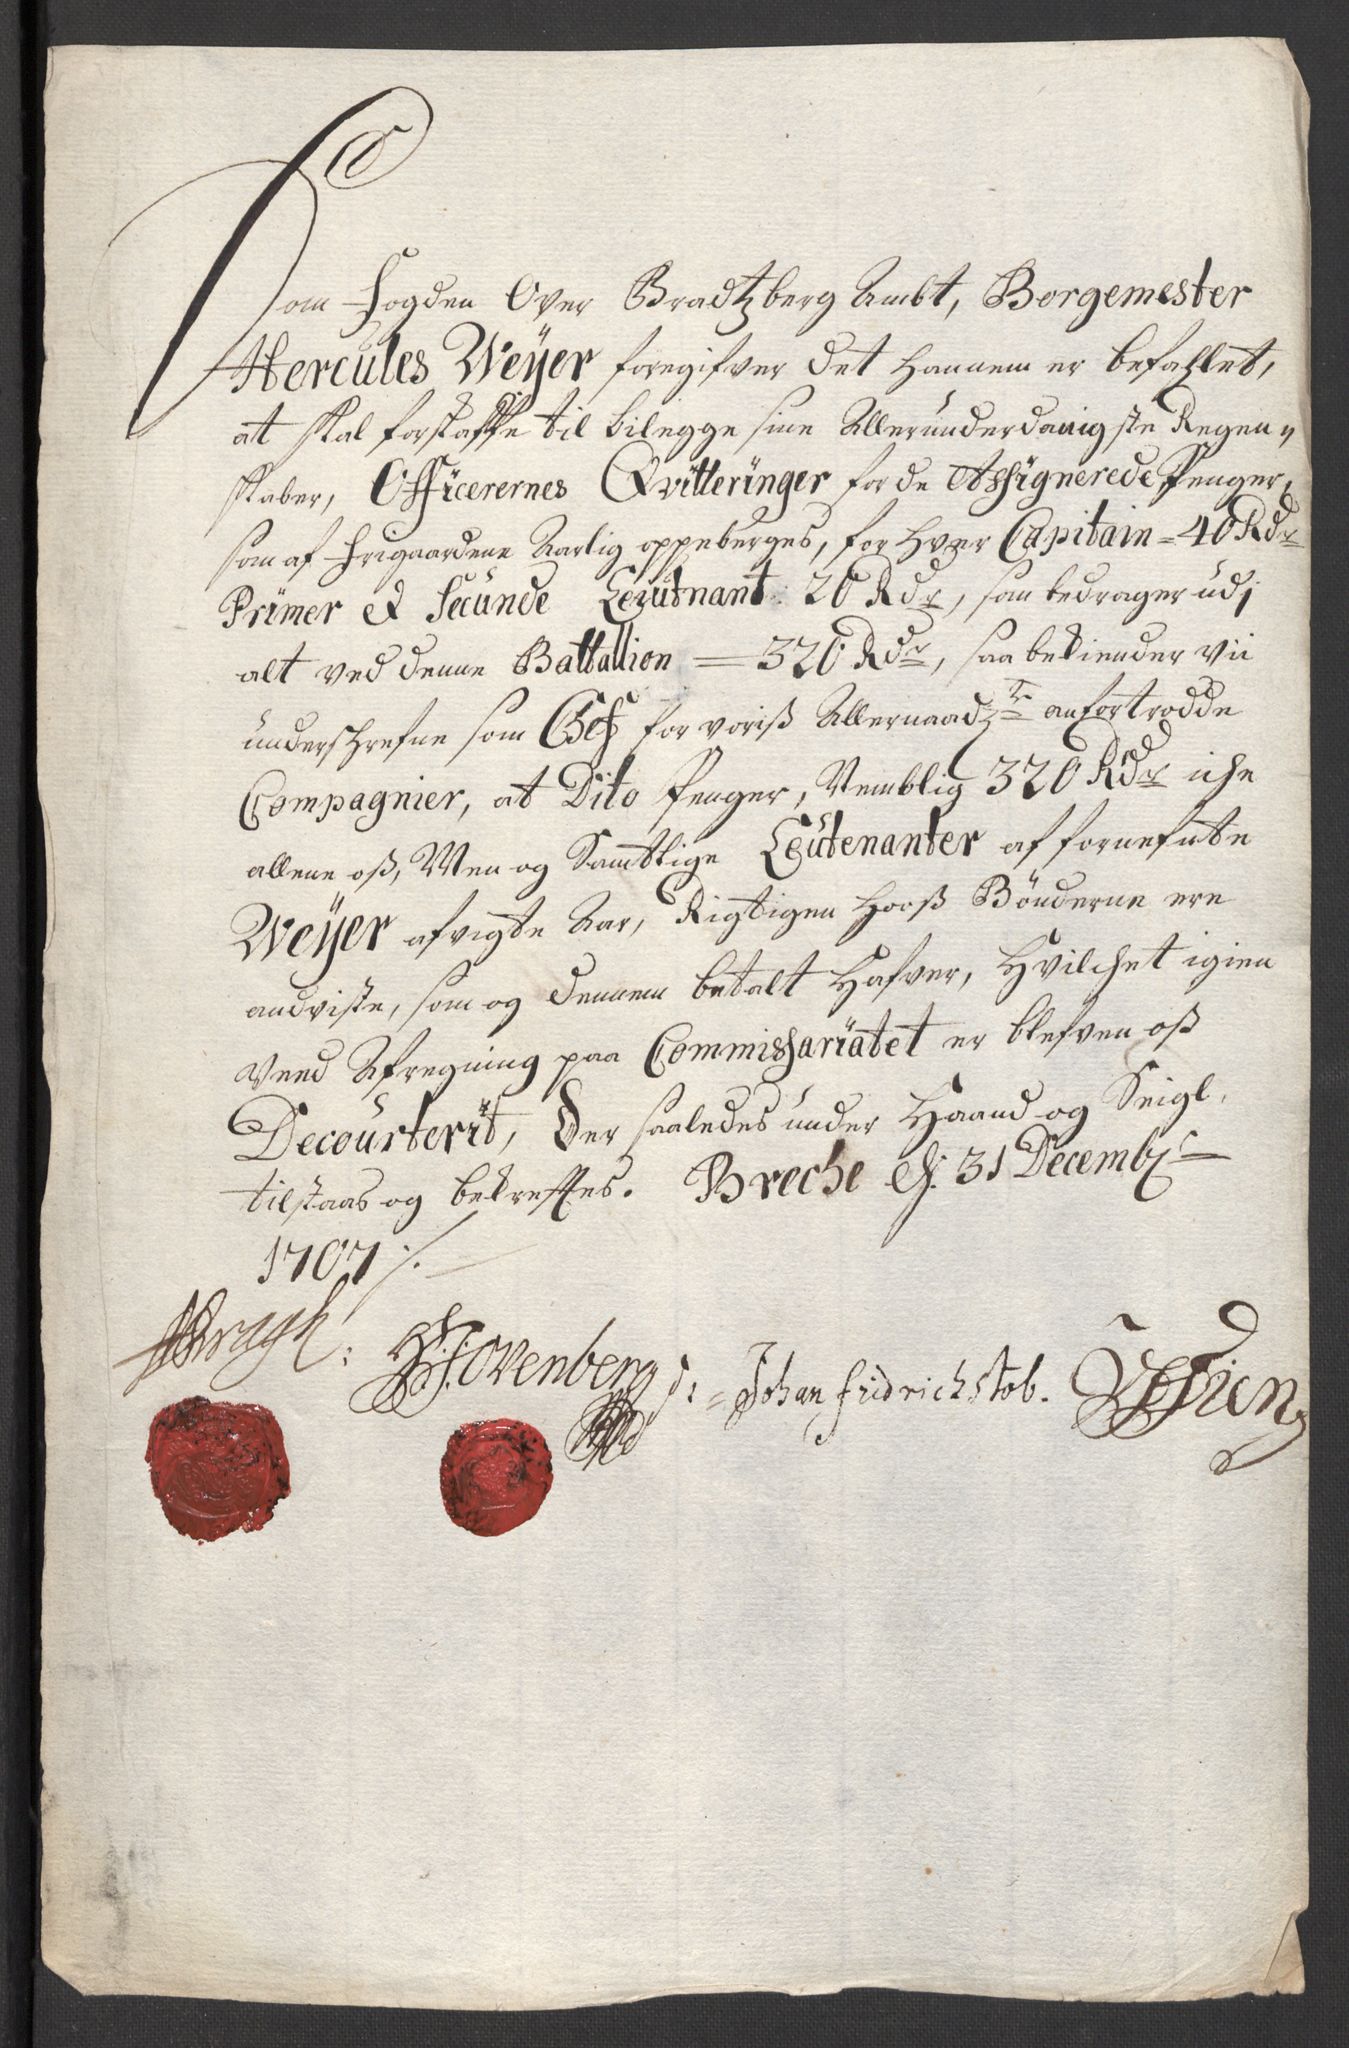 Som Fogden Over Bradtzberg Ambt, Borgemester
Hercules Weÿer foregifver det hannem er befahlet,
at skal forskaffe til bilegge sine Allerunderdanigste Regen=
skaber, Officerernes Qvitteringer for de Assignerede Penger,
som af Frigaardene Aarlig oppeberges, for hver Capitain = 40 Rdr
Primer et Secunde Leutnant 20 Rdr, som bedrager udj
alt ved denne Battallion = 320 Rdr, saa bekiender vii
underschrefne som Chef for voriß Allernaadzte anfortrodde
Compagnier, at Dito Penger, Nemblig 320 Rdr iche
allene oß, Men og Samtlige Leutenanter af fornefnte
Weÿer afvigte Aar, Rigtigen hooß Bönderne ere
andviste, som og dennem betalt hafver, Hvilchet igien
Veed Afregning paa Commissariatet er blefven oß
Decourterit, Der saaledes under Haand og Seigl.
tilstaas og bekreftes. Breche d. 31 Decembr
1707 ./.
Bragh: H: Hovenberg Johan fridrich Stob.